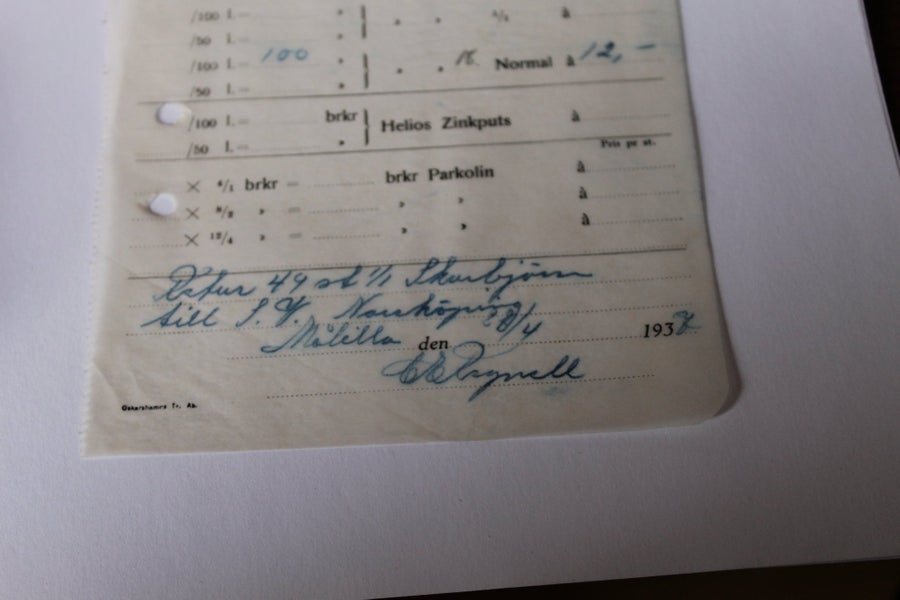 /100 l.= " " " ⁴/₁ à
/50 l.= "
/100 l.= 100 " " " Normal à 12,–
/50 l.= "
/100 l.= brkr Helios Zinkputs à
/50 l.= "
Pris pr st.
× ⁴/₁ brkr = brkr Parkolin à
× ⁸/₂ " = " " à
× ¹²/₄ " = " " à
49 st 1/1
till S. Norrköping 28/4
Målilla den 193
Oskarshamns Tr. Ab.